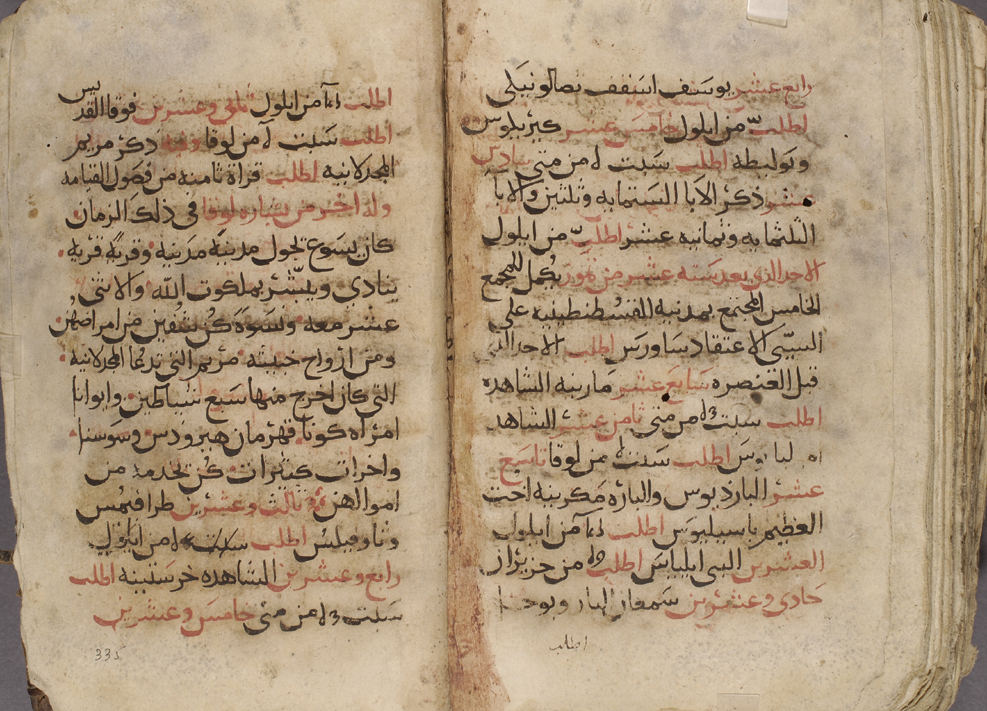 رابع عشر يوسف اسقف تصالونيكي
اطلب من ايلول خامس عشر كيريلوس
ويوليطه اطلب سبت من متي سادس
عشر ذكر الابا الستمايه وثلثين والابا
الثلثمايه وثمانيه عشر اطلب من ايلول
الاحد الذي بعد سته عشر من تموز يكمل للمجمع
الخامس المجتمع بمدنية القسطنطينيه علي
السيي الاعتقاد ساورس اطلب الاحد الذي
قبل العنصره سابع عشر مارينه الشاهده
اطلب سبت من متي ثامن عشر الشاهد
اطلب سبت من لوقا تاسع
عشر البار ديوس والباره مكرينه اخت
العظيم باسيليوس اطلب من ايلول
العشرين النبي ايلياس اطلب من حزيران
حادي وعشرين سمعان البار ويوحنا
اطلب
اطلب من ايلول ثاني وعشرين فوقا القديس
اطلب سبت من لوقا وفيه ذكر مريم
المجدلانيه اطلب قراة ثامنه من فصول القيامه
ولها اخر من بشاره لوقا في ذلك الزمان
كان يسوع يجول مدنية مدنية وقرية قرية
ينادي ويبشر بملكوت الله والاثني
عشر معه ونسوة كن شفين من امراضهن
ومن ارواح خبيثه مريم التي تدعا المجدلانية
التي كان اخرج منها سبع شياطين وايوانا
امراه كوزا قهرمان هيرودس وسوسنا
واخرات كثيرات كن تخدمه من
اموالهن ثالث وعشرين طرافيمس
وثاوفيلس اطلب من ايلول
رابع وعشرين الشاهده خرستينه اطلب
سبت من متي خامس وعشرين
335